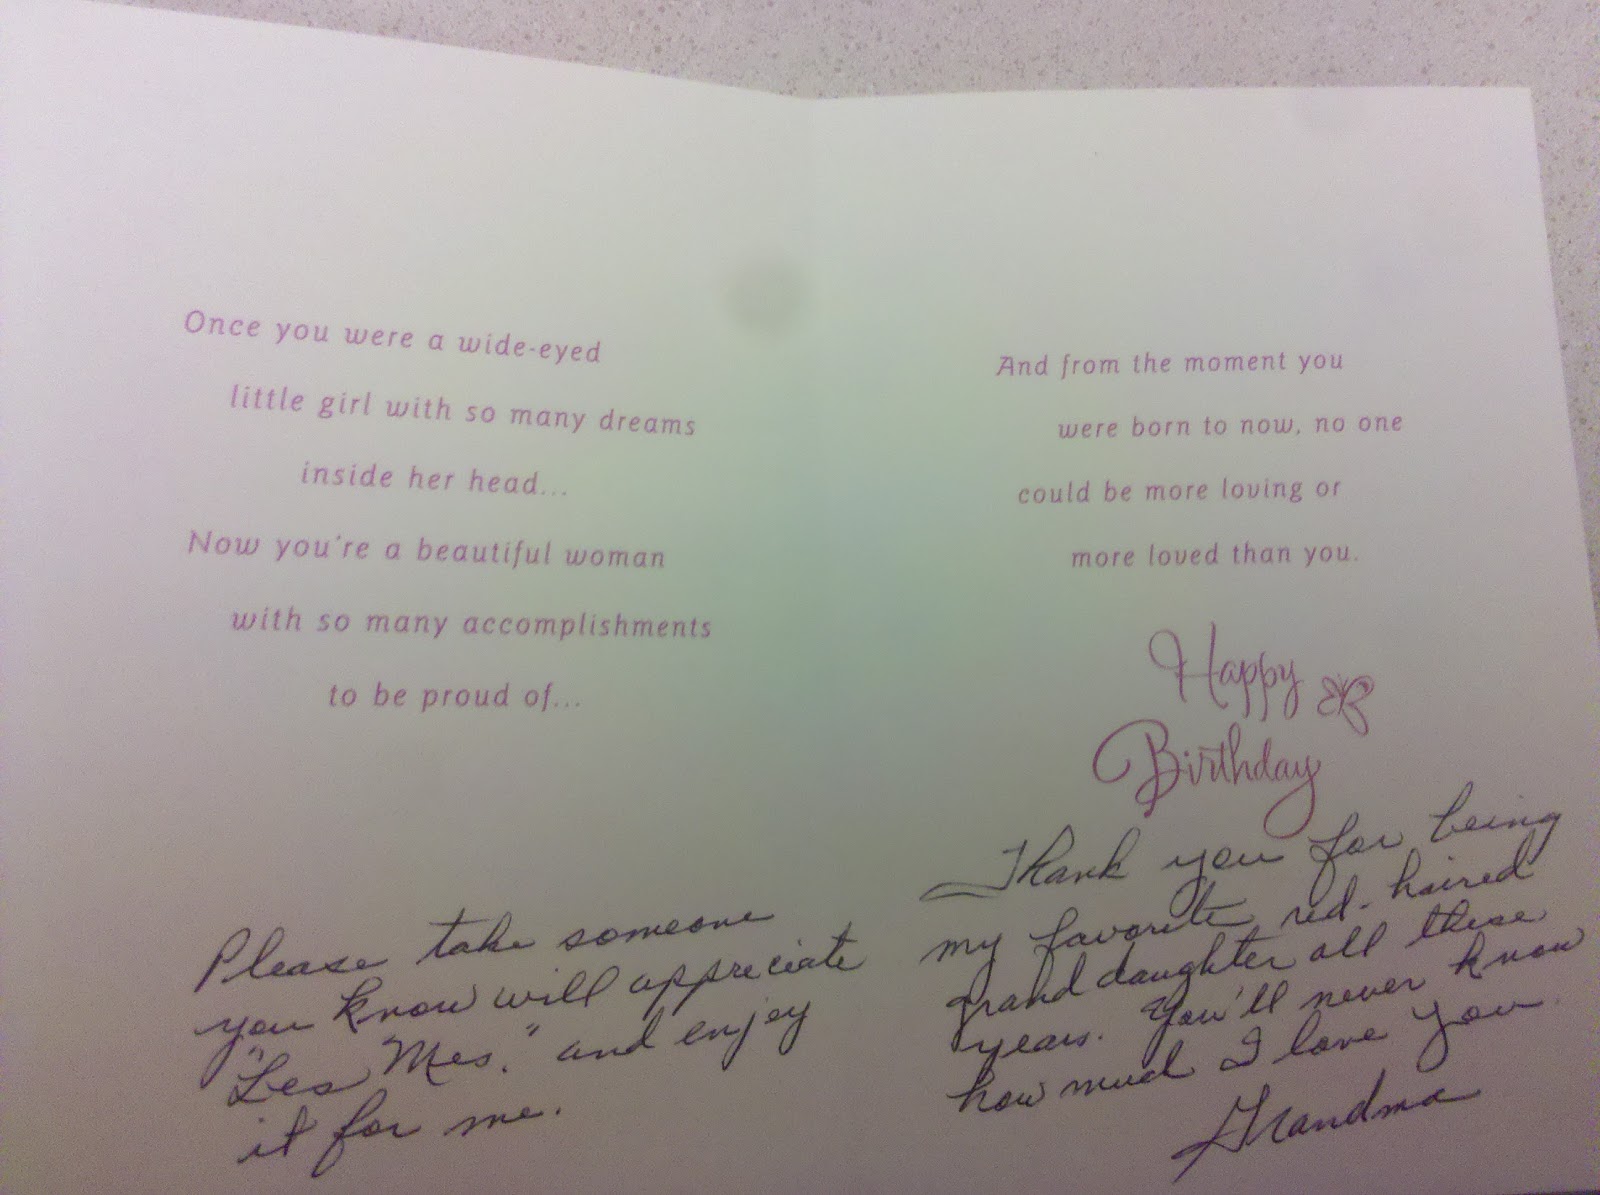 Once you were a wide-eyed
little girl with so many dreams
inside her head...
Now you're a beautiful woman
with so many accomplishments
to be proud of...
Please take someone
you know will appreciate
"Les Mes." and enjoy
it for me.
And from the moment you
were born to now, no one
could be more loving or
more loved than you.
Happy
Birthday
Thank you for being
my favorite red-haired
grand daughter all these
years. You'll never know
how much I love you.
Grandma